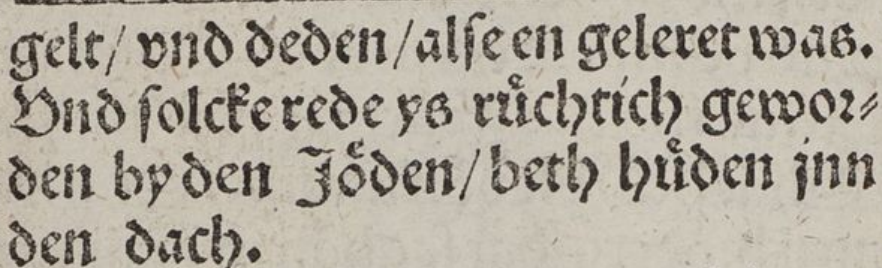 gelt/ vnd deden/alſe en geleret was.
Vnd ſolcke rede ys ruͤchtich gewor⸗
den by den Joͤden/ beth huͤden jnn
den dach.